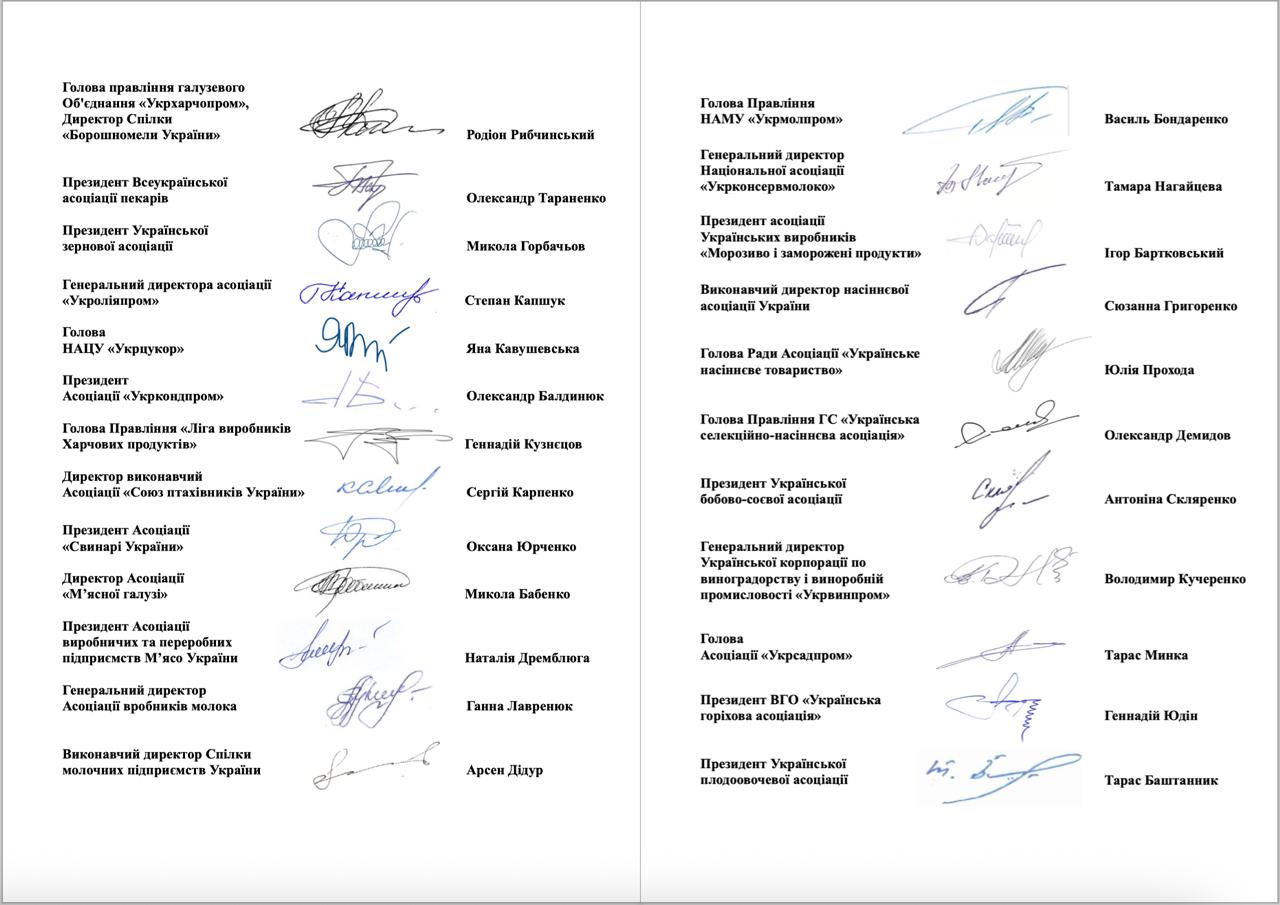 Голова правління галузевого
Об'єднання «Укрхарчопром»,
Директор Спілки
«Борошномели України»
Родіон Рибчинський
Президент Всеукраїнської
асоціації пекарів
Олександр Тараненко
Президент Української
зернової асоціації
Микола Горбачьов
Генеральний директора асоціації
«Укроліяпром»
Степан Капшук
Голова
НАЦУ «Укрцукор»
Яна Кавушевська
Президент
Асоціації «Укркондпром»
Олександр Балдинюк
Голова Правління «Ліга виробників
Харчових продуктів»
Геннадій Кузнєцов
Директор виконавчий
Асоціації «Союз птахівників України»
Сергій Карпенко
Президент Асоціації
«Свинарі України»
Оксана Юрченко
Директор Асоціації
«М’ясної галузі»
Микола Бабенко
Президент Асоціації
виробничих та переробних
підприємств М’ясо України
Наталія Дремблюга
Генеральний директор
Асоціації вробників молока
Ганна Лавренюк
Виконавчий директор Спілки
молочних підприємств України
Арсен Дідур
Голова Правління
НАМУ «Укрмолпром»
Василь Бондаренко
Генеральний директор
Національної асоціації
«Укрконсервмолоко»
Тамара Нагайцева
Президент асоціації
Українських виробників
«Морозиво і заморожені продукти»
Ігор Бартковський
Виконавчий директор насіннєвої
асоціації України
Сюзанна Григоренко
Голова Ради Асоціації «Українське
насіннєве товариство»
Юлія Прохода
Голова Правління ГС «Українська
селекційно-насіннєва асоціація»
Олександр Демидов
Президент Української
бобово-соєвої асоціації
Антоніна Скляренко
Генеральний директор
Української корпорації по
виноградорству і виноробній
промисловості «Укрвинпром»
Володимир Кучеренко
Голова
Асоціації «Укрсадпром»
Тарас Минка
Президент ВГО «Українська
горіхова асоціація»
Геннадій Юдін
Президент Української
плодоовочевої асоціації
Тарас Баштанник